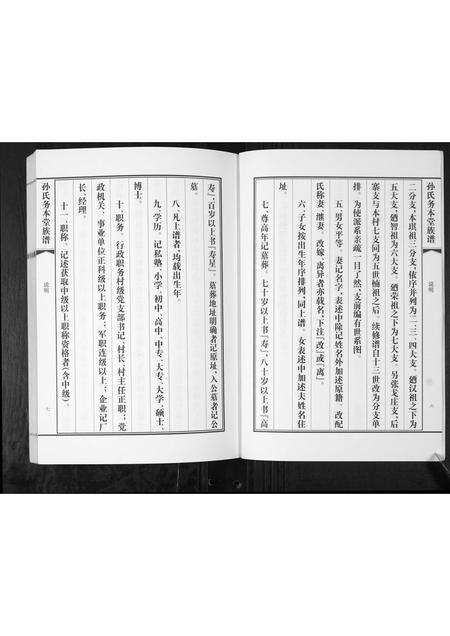 孙氏务本堂族谱
说明
六
二分支,本琪祖三分支,依序并列为二、三、四大支。迺汉祖之下为
五大支。迺智祖为六大支。迺荣祖之下为七大支。另张戈庄支;后
寨支与本村七支同为五世楠祖之后。续修谱自十三世改为分支单
排。为使派系亲疏一目了然,支前编有世系图。
五、男女平等。妻记名字,表述中除记姓名外加述原籍。改配
氏称妻、继妻。改嫁、离异者亦载名,下注『改』或『离』。
六、子女按出生年序排列,同上谱。女表述中加述夫姓名住
址。
七、尊高年记墓葬。七十岁以上书『寿』,八十岁以上书『高
寿』;百岁以上书『寿星』。墓葬地址明确者记原址,入公墓者记公
墓。
八、凡上谱者,均载出生年。
九、学历。记私塾、小学、初中、高中、中专、大专、大学、硕士、
博士。
十、职务。行政职务村级党支部书记、村长、村主任正职;党
政机关、事业单位正科级以上职务;军职连级以上;企业记厂
长、经理。
十一、职称。记述获取中级以上职称资格者(含中级)。
孙氏务本堂族谱
说明
七